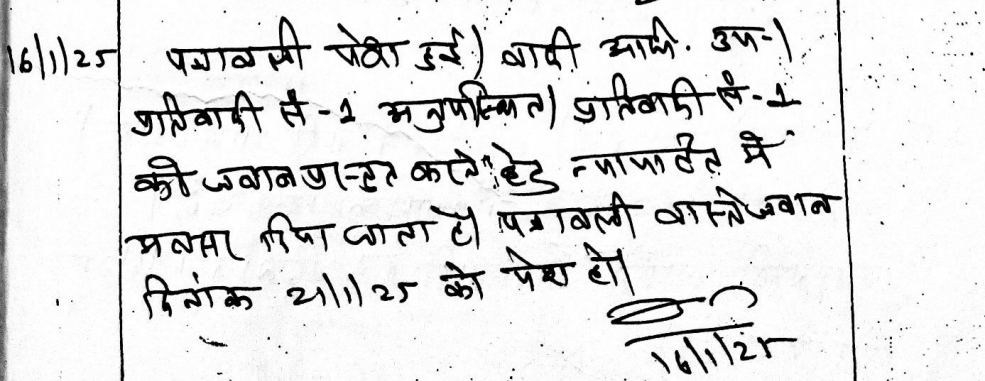 16/1/25 पत्रावली पेश हुई। वादी अधि. उप-।
प्रतिवादी सं-1 अनुपस्थित। प्रतिवादी सं-1
को जवाब प्रस्तुत करने हेतु न्यायहित में
अवसर दिया जाता है। पत्रावली वास्ते जवाब
दिनांक 21/1/25 को पेश हो।
16/1/25